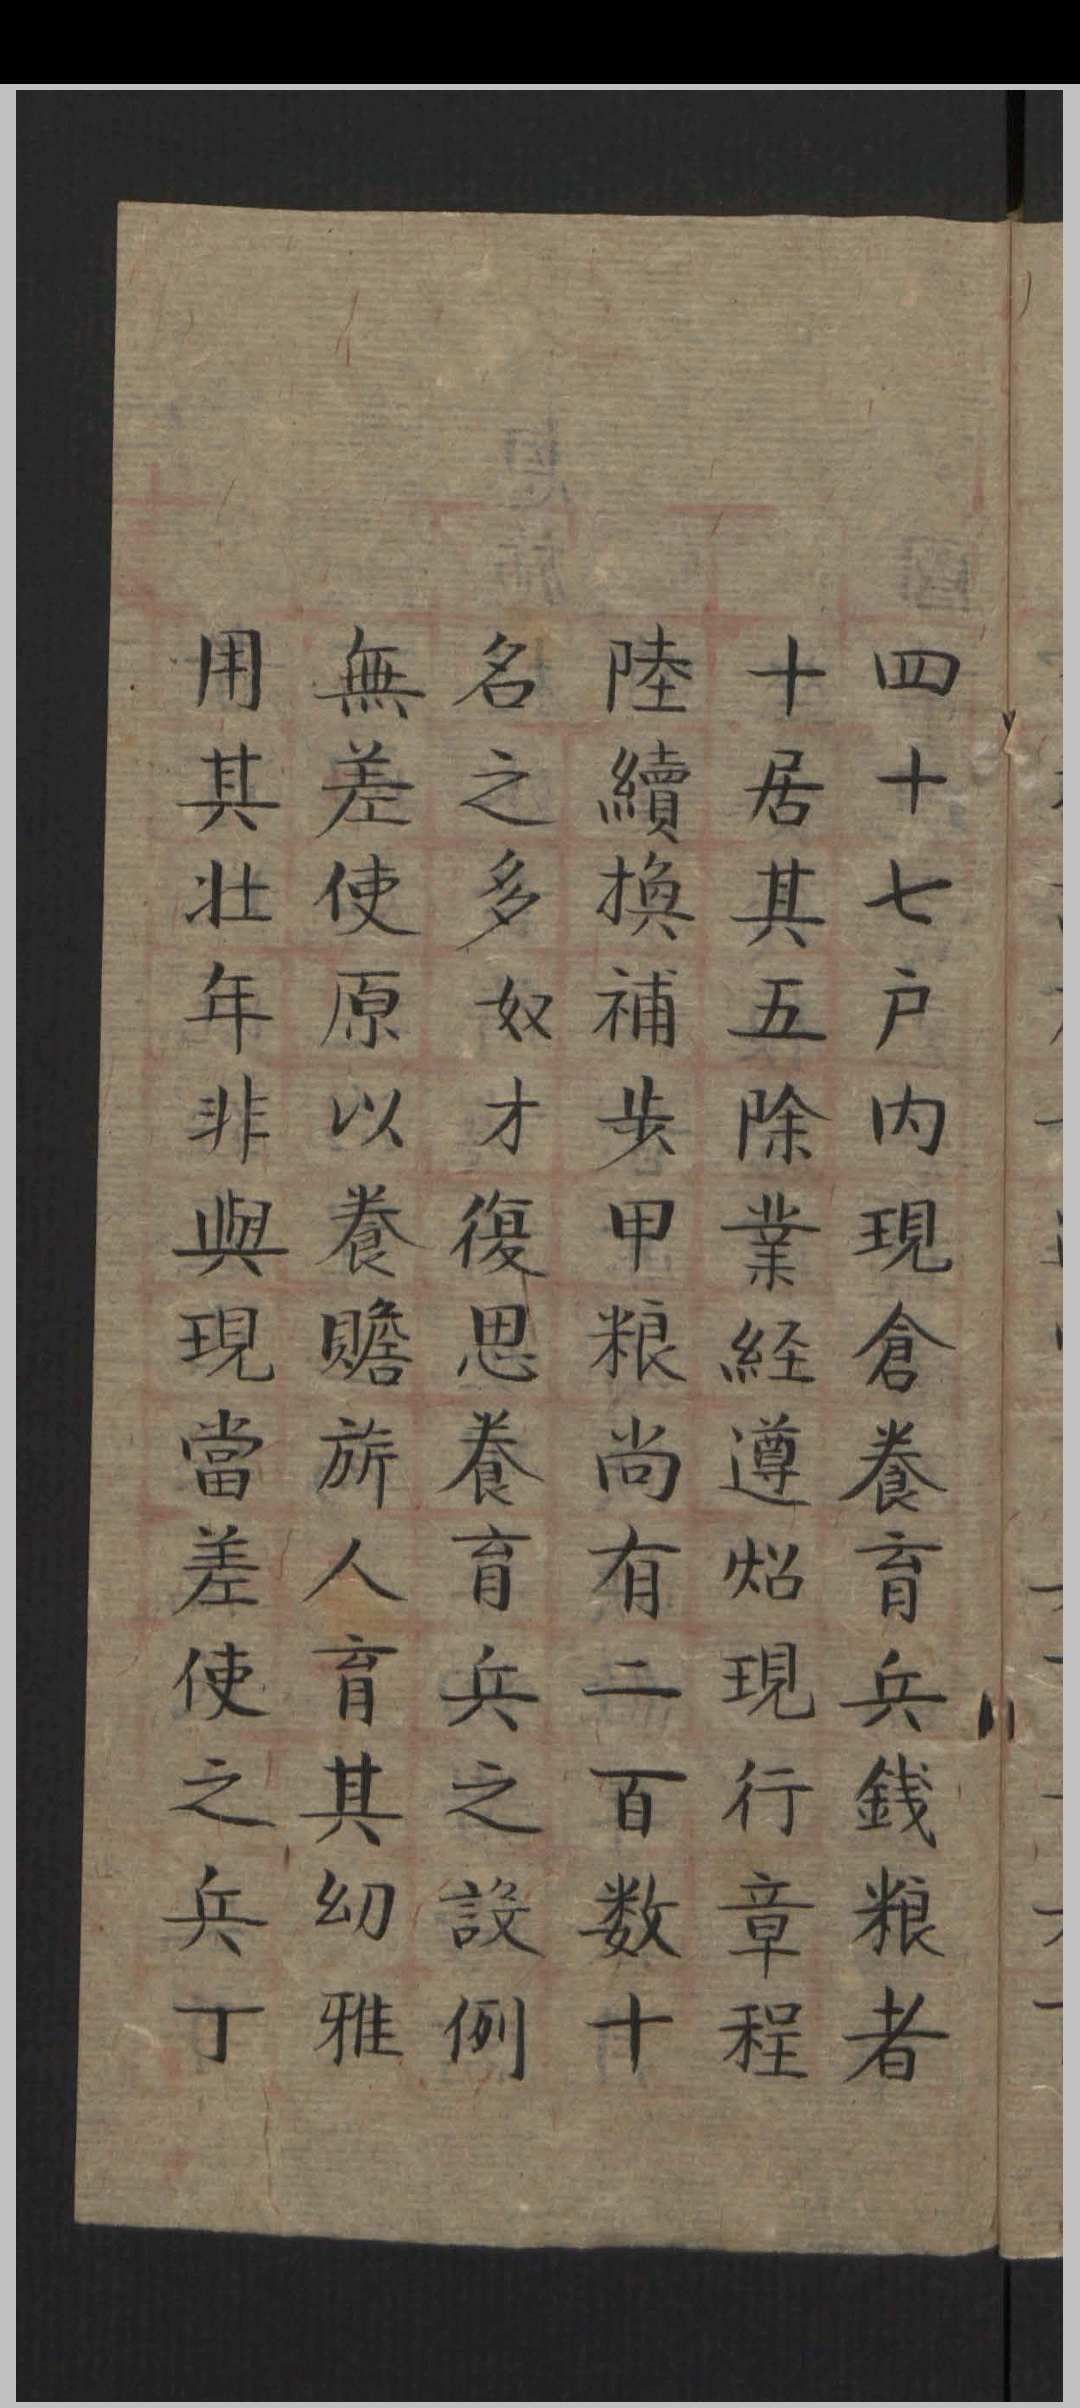 四十七户内現倉養育兵銭粮者
十居其五除業経遵炤現行章程
陸續換補步甲粮尚有二百数十
名之多奴才復思養育兵之設例
無差使原以養贍旂人育其幼雅
用其壯年非與現當差使之兵丁